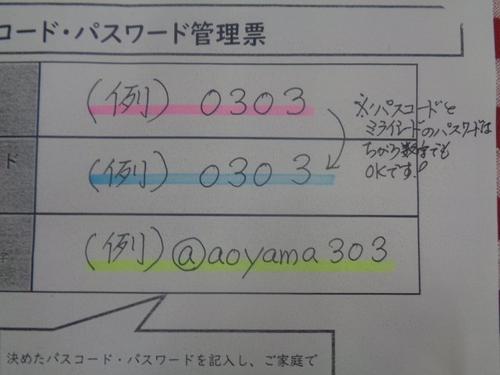 コード・パスワード管理票
(例) 0303
※パスコードと
ミライシードのパスワードは
ちがう数字でも
OKです!
ド
(例) 0303
字
(例) @aoyama303
決めたパスコード・パスワードを記入し、ご家庭で